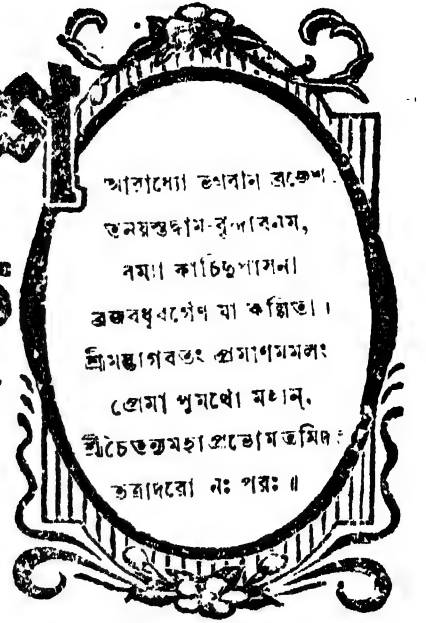 আরাধ্যো ভগবান ব্রজেশ-
তনয়স্তদ্ধাম-বৃন্দাবনম্,
রম্যা কাচিদুপাসনা
ব্রজবধূবর্গেণ যা কল্পিতা।
শ্রীমদ্ভাগবতং প্রমাণমমলং
প্রেমা পুমর্থো মহান্,
শ্রীচৈতন্যমহাপ্রভোর্মতমিদং
তত্রাদরো নঃ পরঃ॥